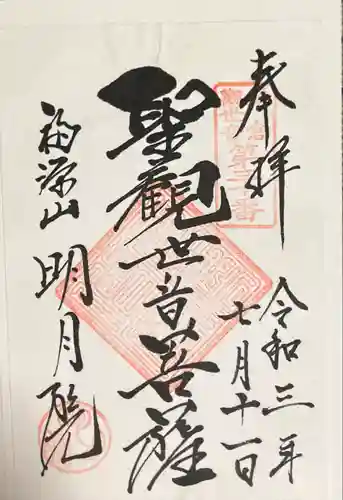 奉拝
令和三年
七月十一日
聖觀世音菩薩
福源山
明月院